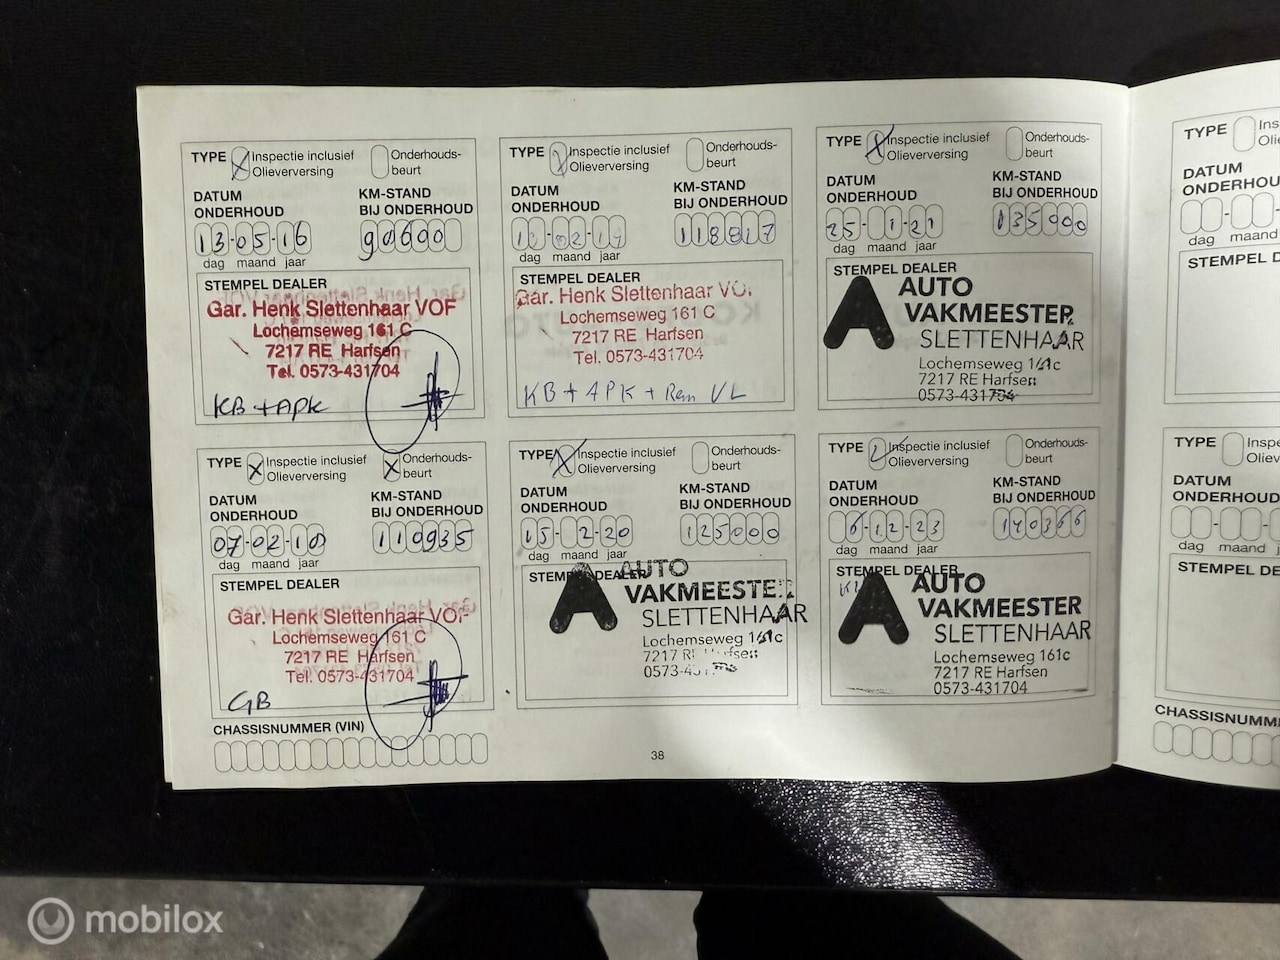 TYPE Inspectie inclusief Olieverversing Onderhouds-beurt
DATUM ONDERHOUD
KM-STAND BIJ ONDERHOUD
13-05-16
90600
dag maand jaar
STEMPEL DEALER
Gar. Henk Slettenhaar VOF
Lochemseweg 161 C
7217 RE Harfsen
Tel. 0573-431704
KB + APK
TYPE Inspectie inclusief Olieverversing Onderhouds-beurt
DATUM ONDERHOUD
KM-STAND BIJ ONDERHOUD
07-02-18
110935
dag maand jaar
STEMPEL DEALER
Gar. Henk Slettenhaar VOF
Lochemseweg 161 C
7217 RE Harfsen
Tel. 0573-431704
GB
CHASSISNUMMER (VIN)
TYPE Inspectie inclusief Olieverversing Onderhouds-beurt
DATUM ONDERHOUD
KM-STAND BIJ ONDERHOUD
02
118817
dag maand jaar
STEMPEL DEALER
Gar. Henk Slettenhaar VOF
Lochemseweg 161 C
7217 RE Harfsen
Tel. 0573-431704
KB + APK + Rem VL
TYPE Inspectie inclusief Olieverversing Onderhouds-beurt
DATUM ONDERHOUD
KM-STAND BIJ ONDERHOUD
15-2-20
125000
dag maand jaar
STEMPEL DEALER
A AUTO
VAKMEESTER
SLETTENHAAR
Lochemseweg 161c
7217 RE Harfsen
0573-43
TYPE Inspectie inclusief Olieverversing Onderhouds-beurt
DATUM ONDERHOUD
KM-STAND BIJ ONDERHOUD
25-1-21
135000
dag maand jaar
STEMPEL DEALER
A AUTO
VAKMEESTER
SLETTENHAAR
Lochemseweg 161c
7217 RE Harfsen
0573-431704
TYPE Inspectie inclusief Olieverversing Onderhouds-beurt
DATUM ONDERHOUD
KM-STAND BIJ ONDERHOUD
6-12-23
140366
dag maand jaar
STEMPEL DEALER
A AUTO
VAKMEESTER
SLETTENHAAR
Lochemseweg 161c
7217 RE Harfsen
0573-431704
38
TYPE Ins
Olie
DATUM
ONDERHOUD
dag maand
STEMPEL D
TYPE Inspe
Oliev
DATUM
ONDERHOUD
dag maand
STEMPEL DE
CHASSISNUMM
mobilox